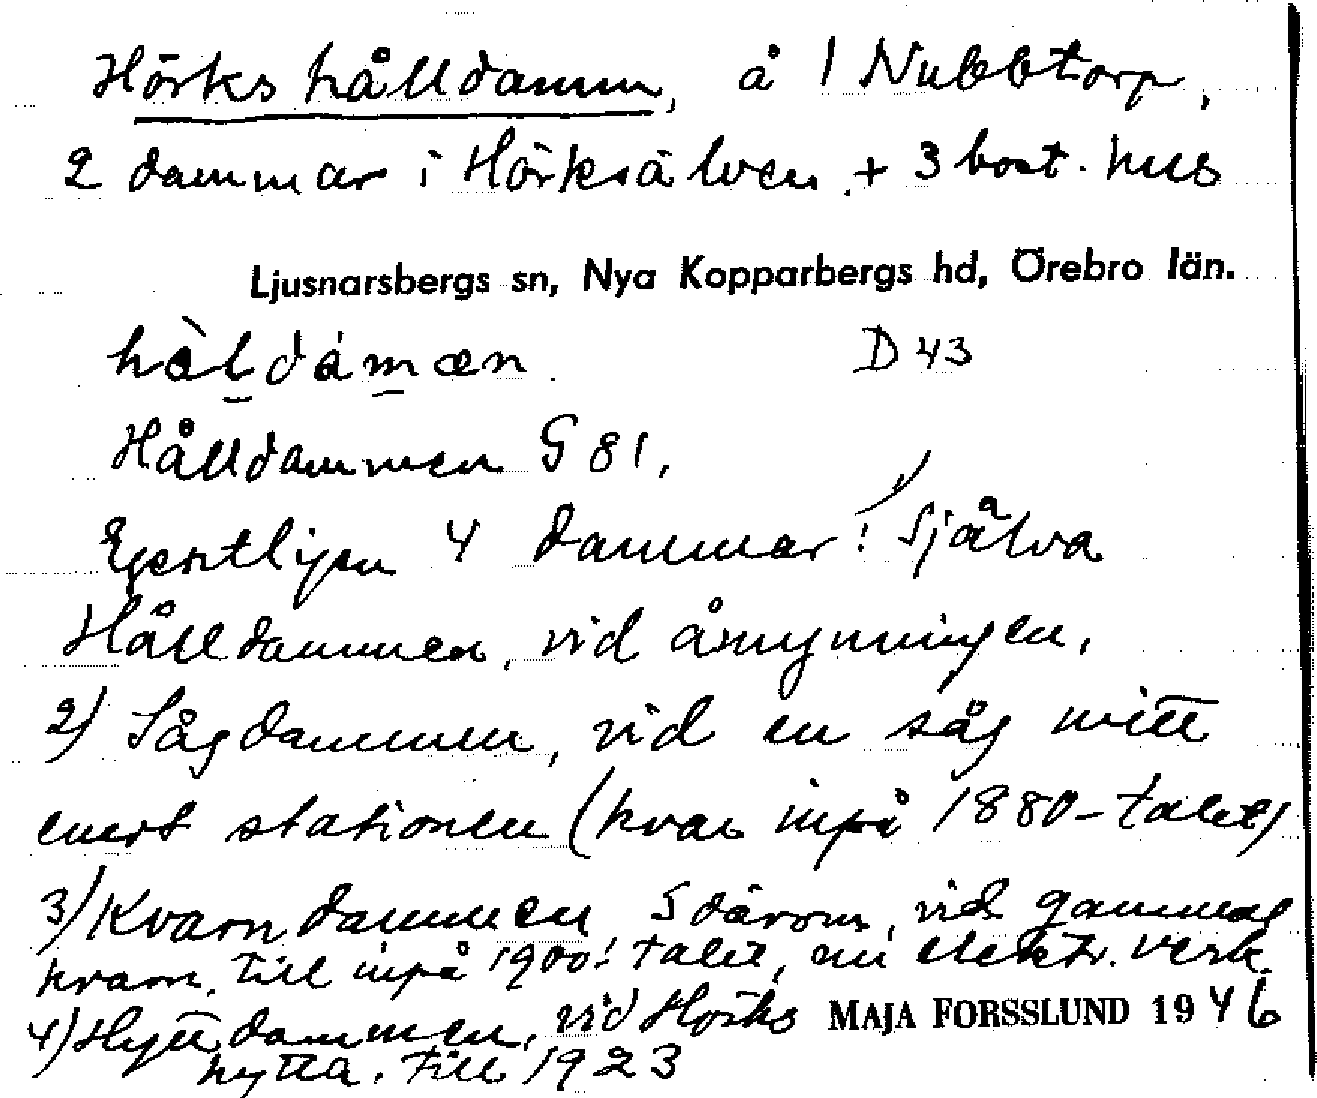 Hörks hålldamm, å 1 Nubbtorp,
2 dammar i Hörksälven + 3 bost. hus
Ljusnarsbergs sn, Nya Kopparbergs hd, Örebro län.
hàldámæn D 43
Hålldammen G 81,
Egentligen 4 dammar: Själva
Hålldammen, vid åmynningen,
2) Sågdammen, vid en såg mitt
emot stationen (kvar inpå 1880-talet)
3) Kvarndammen S därom, vid gammal
kvarn, till inpå 1900-talet, nu elektr. verk.
4) Hyttdammen, vid Hörks MAJA FORSSLUND 1946
hytta, till 1923